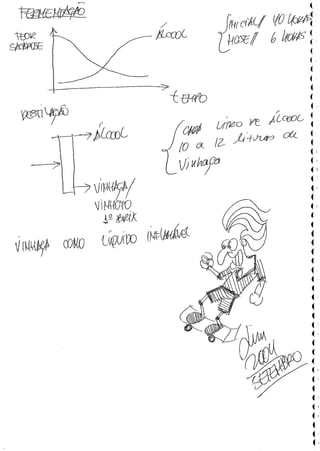 FERMENTAÇÃO
TEOR
SACAROSE
ÁLCOOL
TEMPO
INICIAL// 40 HORAS
HOJE// 6 HORAS
DESTILAÇÃO
ÁLCOOL
VINHAÇA/
VINHOTO
CADA LITRO DE ÁLCOOL
10 a 12 litros de
vinhaça
VINHAÇA COMO LÍQUIDO INFLAMÁVEL
2004
SETEMBRO